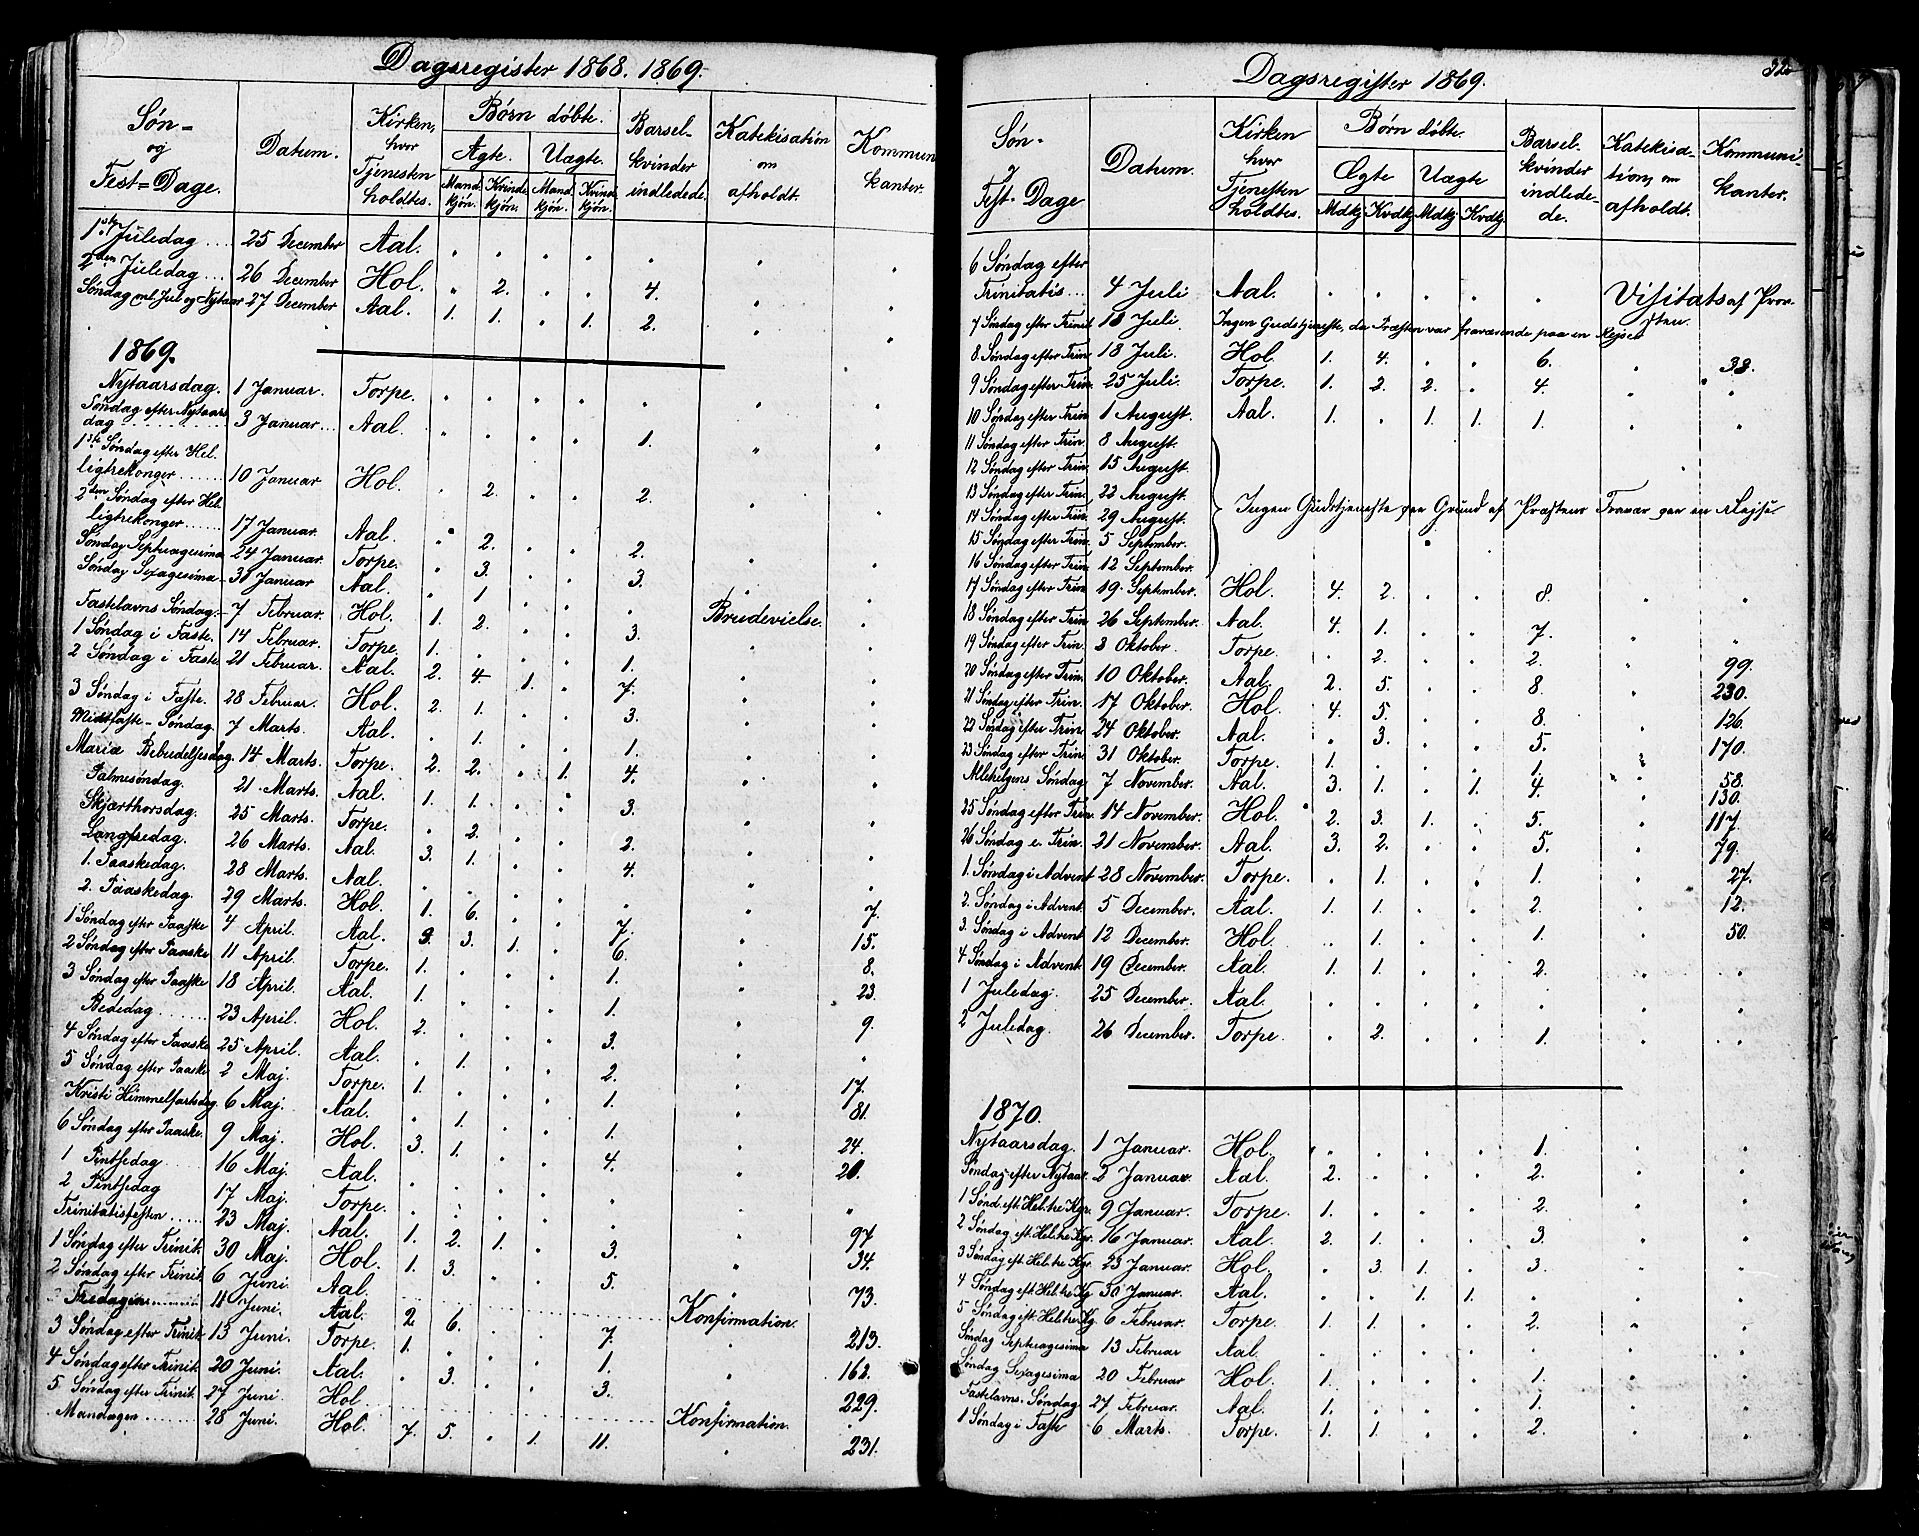 Dagsregister 1868. 1869.
Søn= og Fest=Dage. Datum. Kirken, hvor Tjenesten holdtes. Børn døbte. Ægte. Uægte. Mand. kjön. Kvinde kjön. Mand. kjön. Kvinde kjön. Barsel-kvinder indledede. Katekisation om afholdt. Kommunikanter.
1ste Juledag .... 25 December Aal. . . . . . . .
2den Juledag ... 26 December Hol. . 2. . . 4. . .
Søndag ml. Jul og Nytaar 27 December Aal. 1. 1. . 1. 2. . .
1869.
Nytaarsdag. 1 Januar. Torpe. . . . . . . .
Søndag efter Nytaars
dag .......... 3 Januar... Aal. . . . . 1. . .
1ste Søndag efter Hel.
ligtrekonger ....... 10 Januar Hol. . 2. . . 2. . .
2den Søndag efter Hel.
ligtrekonger ...... 17 Januar. Aal. . 2. . . 2. . .
Søndag Septuagesima 24 Januar. Torpe. . 3. . . 3. . .
Søndag Sexagesima 31 Januar Aal. . 1 . . . . .
Fastelavns Søndag. 7 Februar. Hol. 1. 2. . . 3. Brudevielse. .
1 Søndag i Faste. 14 Februar. Torpe. 1. . . . 1. . .
2 Søndag i Faste 21 Februar. Aal. 2. 4. 1. . 7. . .
3 Søndag i Faste. 28 Februar. Hol. 2. 1. . . 3. . .
Midtfaste-Søndag. 7 Marts. Aal. . 1. . . 1. . .
Mariæ Bebudelsesdag. 14 Marts. Torpe. 2. 2. . 1. 4. . .
Palmesøndag. 21 Marts. Aal. 1. 1. . . 3. . .
Skjærthorsdag. 25 Marts. Torpe. . 2. . . 2. . .
Langfredag. 26 Marts. Aal. 3. 1. . . 4. . .
1. Paaskedag. 28 Marts. Aal. . . . . . . .
2. Paaskedag. 29 Marts. Hol. 1. 6. . . 7. . 7.
1 Søndag efter Paaske 4 April. Aal. 3. 3. 1. . 6. . 15.
2 Søndag efter Paaske 11 April. Torpe. 1. . . . 1. . 8.
3 Søndag efter Paaske 18 April. Aal. 1. . . . 1. . 23.
Bededag ...... 23 April. Hol. 2. . . . 3. . 9.
4 Søndag efter Paaske 25 April. Aal. . 1. . . 2. . .
5 Søndag efter Paaske 2 Maj. Torpe. 1. . . . 1. . 17.
Kristi Himmelfartsdag. 6 Maj. Aal. . 1. . . 1. . 81.
6 Søndag efter Paaske. 9 Maj. Hol. 3. 1. . . 4. . 24.
1 Pintsedag 16 Maj. Aal. . . . . . . 20.
2 Pintsedag 17 Maj. Torpe. . . . . . . "
Trinitatisfesten ..... 23 Maj. Aal. 1. 2. 1. . 3. . 97
1 Søndag efter Trinit. 30 Maj. Hol. 1. 3. . . 5. . 34.
2 Søndag efter Trinit. 6 Juni. Aal. . . . . . . 73.
Fredagen ........ 11 Juni. Aal. 2 6. . . 7. Konfirmation.
3 Søndag efter Trinit. 13 Juni. Torpe. 1. . . . 1. . 213.
4 Søndag efter Trinit. 20 Juni. Aal. . 3. . . 3. . 162.
5 Søndag efter Trinit. 27 Juni. Hol. . 229.
Mandagen ........ 28 Juni. Hol. 7. 5. . 1. 11. Konfirmation. 231.
Dagsregister 1869.
Søn- og Fest-Dage Datum. Kirken hvor Tjenesten holdtes. Børn døbte. Ægte Uægte Mdkj Kvdkj Mdkj Kvdkj. Barsel-kvinder indledede. Katekisation om afholdt. Kommunikanter.
6 Søndag efter
Trinitatis ... 4 Juli Aal. . . . . . Visitats af Provsten.
7 Søndag efter Trinit 11 Juli. Ingen Gudstjeneste, da Præsten var fraværende paa en Rejse.
8. Søndag efter Trin. 18 Juli. Hol. 1. 4. . . 6. . 38.
9 Søndag efter Trin. 25 Juli. Torpe. 1. 2. 2. . 4. . .
10 Søndag efter Trin 1 August. Aal. 1. . 1. 1. 1. . .
11 Søndag efter Trin. 8 August.
12 Søndag efter Trin. 15 August.
13 Søndag efter Trin. 22 August. Ingen Gudstjeneste paa Grund af Præstens Fravær paa en Rejse
14 Søndag efter Trin. 29 August.
15 Søndag efter Trin. 5 September.
16 Søndag efter Trin. 12 September.
17 Søndag efter Trin. 19. September. Hol. 4. 2. . . 8. . .
18. Søndag efter Trin. 26 September. Aal. 4. 1. . . 7. . .
19 Søndag efter Trin. 3 Oktober. Torpe. . 2. . . 2. . 99.
20 Søndag efter Trin. 10 Oktober. Aal. 2. 5. . . 8. . 230.
21 Søndag efter Trin. 17 Oktober. Hol. 4. 5. . . 8. . 126.
22 Søndag efter Trin. 24 Oktober. Aal. . 3. . . 5. . 170.
23 Søndag efter Trin. 31 Oktober. Torpe. 1. . . . 1. . 58.
Allehelgens Søndag 7 November. Aal. 3. 1. . 1. 4. . 130.
25 Søndag efter Trin. 14 November. Hol. 2. 3. 1. . 5. . 117.
26 Søndag e. Trin. 21 November. Aal. 3. 2. . . 5. . 79.
1. Søndag i Advent 28 November. Torpe. . 1. . . 1. . 27.
2. Søndag i Advent. 5 December. Aal. 1. 1. . . 2. . 12.
3. Søndag i Advent 12 December. Hol. . 1. . . 1. . 50.
4 Søndag i Advent. 19 December. Aal. 1. 1. . . 2. . .
1 Juledag. 25 December. Aal. . . . . . . .
2 Juledag. 26 December. Torpe. . 2. . . 1. . .
1870.
Nytaarsdag. 1 Januar. Hol. . . . . 1. . .
Søndag efter Nytaar. 2 Januar. Aal. 2. . . . 2. . .
1 Sønd. eft. Hel. tre Kgr. 9 Januar. Torpe. 1. . . . 2. . .
2 Søndag eft. Hel. tre Kgr. 16 Januar. Aal. 2. 1. . . 3. . .
3 Søndag eft. Hel. tre Kgr. 23 Januar. Hol. . 3. 1. . 3. . .
4 Søndag eft. Hel. tre Kg 30 Januar. Aal. . . 1. 1. . . .
5 Søndag eft. Hel. tre Kg. 6 Februar. Torpe. 1. 1. . . 2. . .
Søndag Septuagesima 13 Februar Aal. . . . . . . .
Søndag Sexagesima 20 Februar Hol. 1. . . . 1. . .
Fastelavns. Søndag 27 Februar. Aal. 1. . . . 1. . .
1 Søndag i Faste 6 Marts. Torpe. 1. 1. . . 2. . .